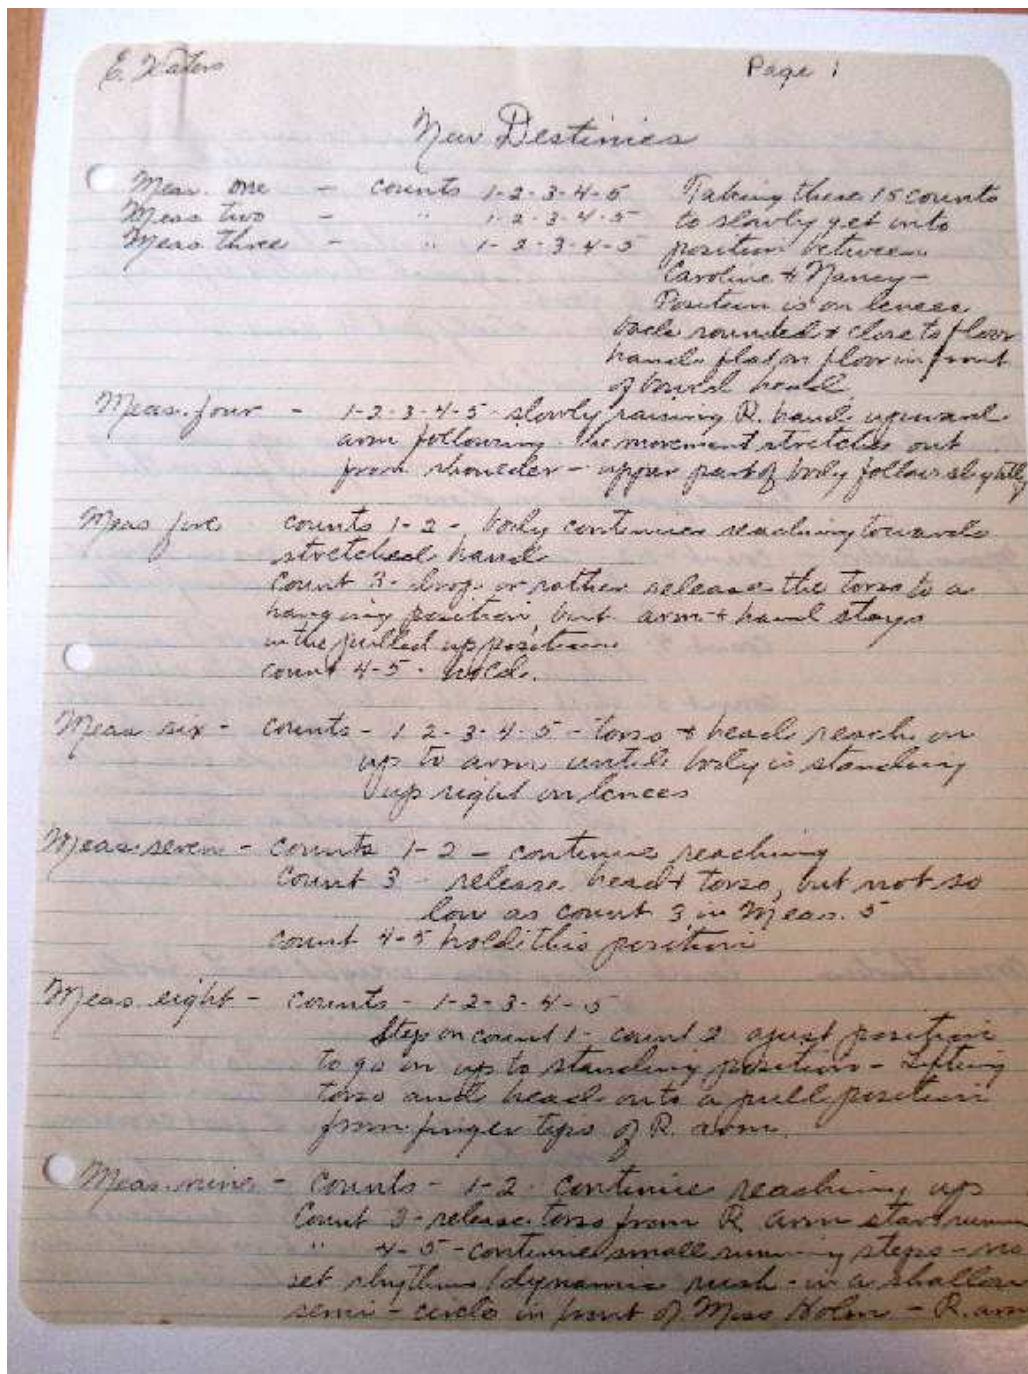 E. Waters
Page 1
New Destinies
Meas. one - counts 1-2-3-4-5 Taking these 15 counts
Meas two - " 1-2-3-4-5 to slowly get into
Meas. three - " 1-2-3-4-5 position between
Caroline + Nancy -
Position is on knees
back rounded + close to floor
hands flat on floor in front
of bowed head.
Meas. four - 1-2-3-4-5 - slowly raising R. hand upward
arm following the movement stretches out
from shoulder - upper part of body follows slightly
Meas five counts 1-2 - body continues reaching towards
stretched hand
Count 3 - drop or rather release the torso to a
hanging position, but arm + hand stays
in the pulled up position
count 4-5 - hold.
Meas six - counts - 1 2-3-4-5 - torso + head reach on
up to arm until body is standing
up right on knees
Meas. seven - counts 1-2 - continue reaching
Count 3 - release head + torso, but not so
low as count 3 in Meas. 5
count 4-5 hold this position
Meas. eight - counts - 1-2-3-4-5
Step on count 1 - count 2 ajust position
to go on up to standing position - Lifting
torso and head onto a pull position
from finger tips of R. arm.
Meas. nine - Counts - 1-2 - continue reaching up
Count 3 - release torso from R arm start runn
" 4-5 - continue small running steps - no
set rhythm / dynamic rush - in a shallow
semi-circle in front of Miss Holm - R. arm